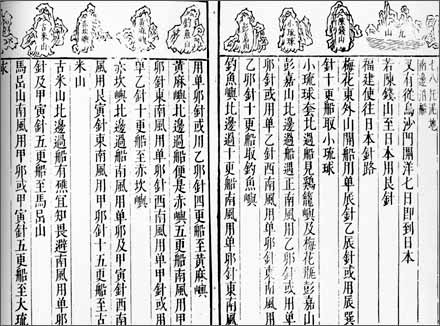 陳錢山
小琉球
釣魚嶼
又有從烏沙門開洋七日即到日本
若陳錢山至日本用艮針
福建使往日本針路
梅花東外山開船用單辰針乙辰針或用辰巽
針十更船取小琉球
小琉球套北過船見雞籠嶼及梅花瓶彭嘉山
彭嘉山北邊過船遇正南風用乙卯針或用單
卯針或用單乙針西南風用單卯針東南風用
乙卯針十更船取釣魚嶼
釣魚嶼北邊過十更船南風用單卯針東南風
用單卯針或用乙卯針四更船至黃麻嶼
黃麻嶼北邊過船便是赤嶼五更船南風用甲
卯針東南風用單卯針西南風用單甲針或用
單乙針十更船至赤坎嶼
赤坎嶼北邊過船南風用單卯及甲寅針西南
風用艮寅針東南風用甲卯針十五更至古
米山
古米山北邊過船有礁宜知畏避南風用單卯
針及甲寅針五更船至馬岊山
馬岊山南風用甲卯或甲寅針五更船至大琉
球